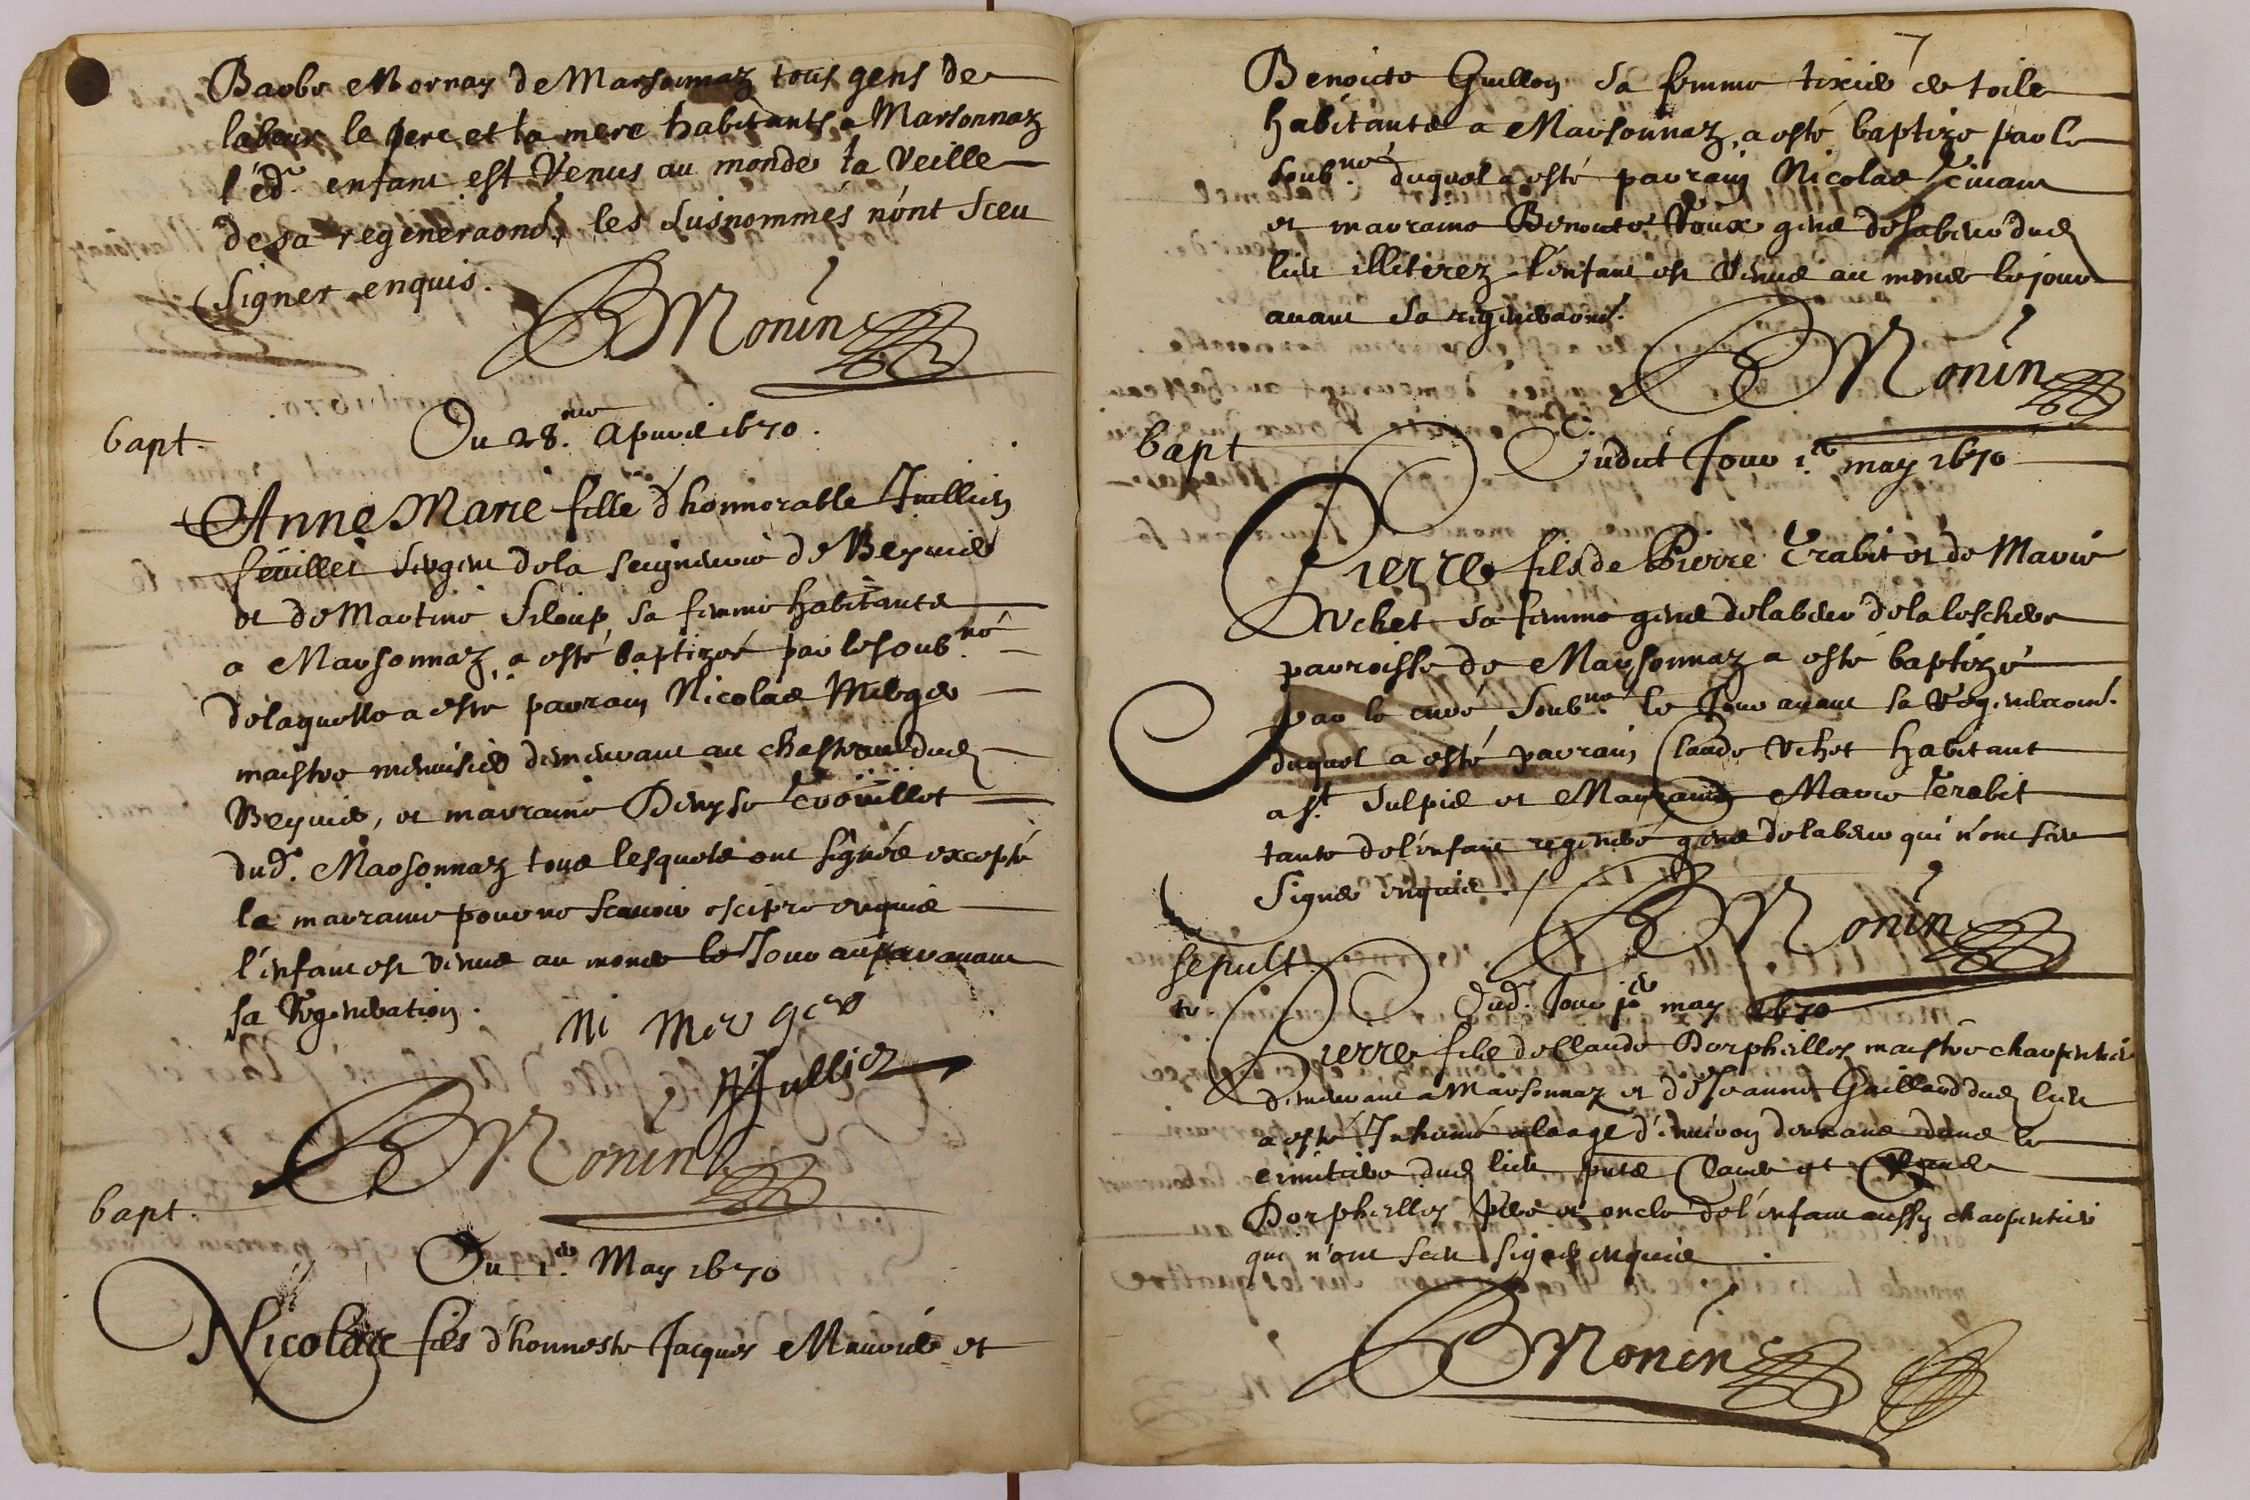 Barbe Mornay de Marsonnaz tous gens de
labeur le pere et la mere habitants a Marsonnaz
l'éd. enfant est Venus au monde la Veille
de sa regeneraond, les susnommés n'ont sceu
signer enquis.
BMonin
bapt.
Du 28.me Apvril 1670.
Anne Marie fille d'honnorable Jullien
feuillet sergent de la seigneurie de Beyvies
et de Martine Siloup sa femme habitants
a Marsonnaz, a esté baptizée par le soub.né
de laquelle a esté parrain Nicolas Merger
maistre menuisier demeurant au chasteau dud
Beyvies, et marraine Denyse
dud. Marsonnaz tous lesquels ont signés excepté
la marraine pour ne scavoir escipre enquis
l'enfant est venue au monde le Jour auparavant
sa Regeneration.
ni Merger
Jullien
BMonin
bapt.
Du 1.er May 1670
Nicolas fils d'honneste Jacques et
7
Benoicte Guillon sa femme tixier de toile
habitants a Marsonnaz, a esté baptize par le
soub.né duquel a esté parrain Nicolas
et marraine Benoicte Roux gens de labeur dud
lieu illiterez l'enfant est venus au monde le jour
avant sa regeneraond.
BMonin
bapt
Dudit Jour 1.er may 1670
Pierre fils de Pierre Trabit et de Marie
Vchet sa femme gens de labeur de la leschere
parroisse de Marsonnaz a esté baptizé
par le curé soub.né le Jour avant sa Regeneraond.
duquel a esté parrain Claude Vchet habitant
a st Sulpis et Marraine Marie Terabit
tante de l'enfant regeneré gens de labeur qui n'ont sceu
Signer enquis.
BMonin
sepult
re
Dud. Jour 1er may 1670
Pierre fils de Claude Dorpheilles maistre charpentier
demeurant a Marsonnaz et de Jeanne Gaillard dud lieu
a esté Inhumé a l'aage d'environ deux ans dans le
cimitiere dud lieu pnts Claude et
Dorpheilles pere et oncle de l'enfant aussy charpentiers
qui n'ont sceu signer enquis.
BMonin